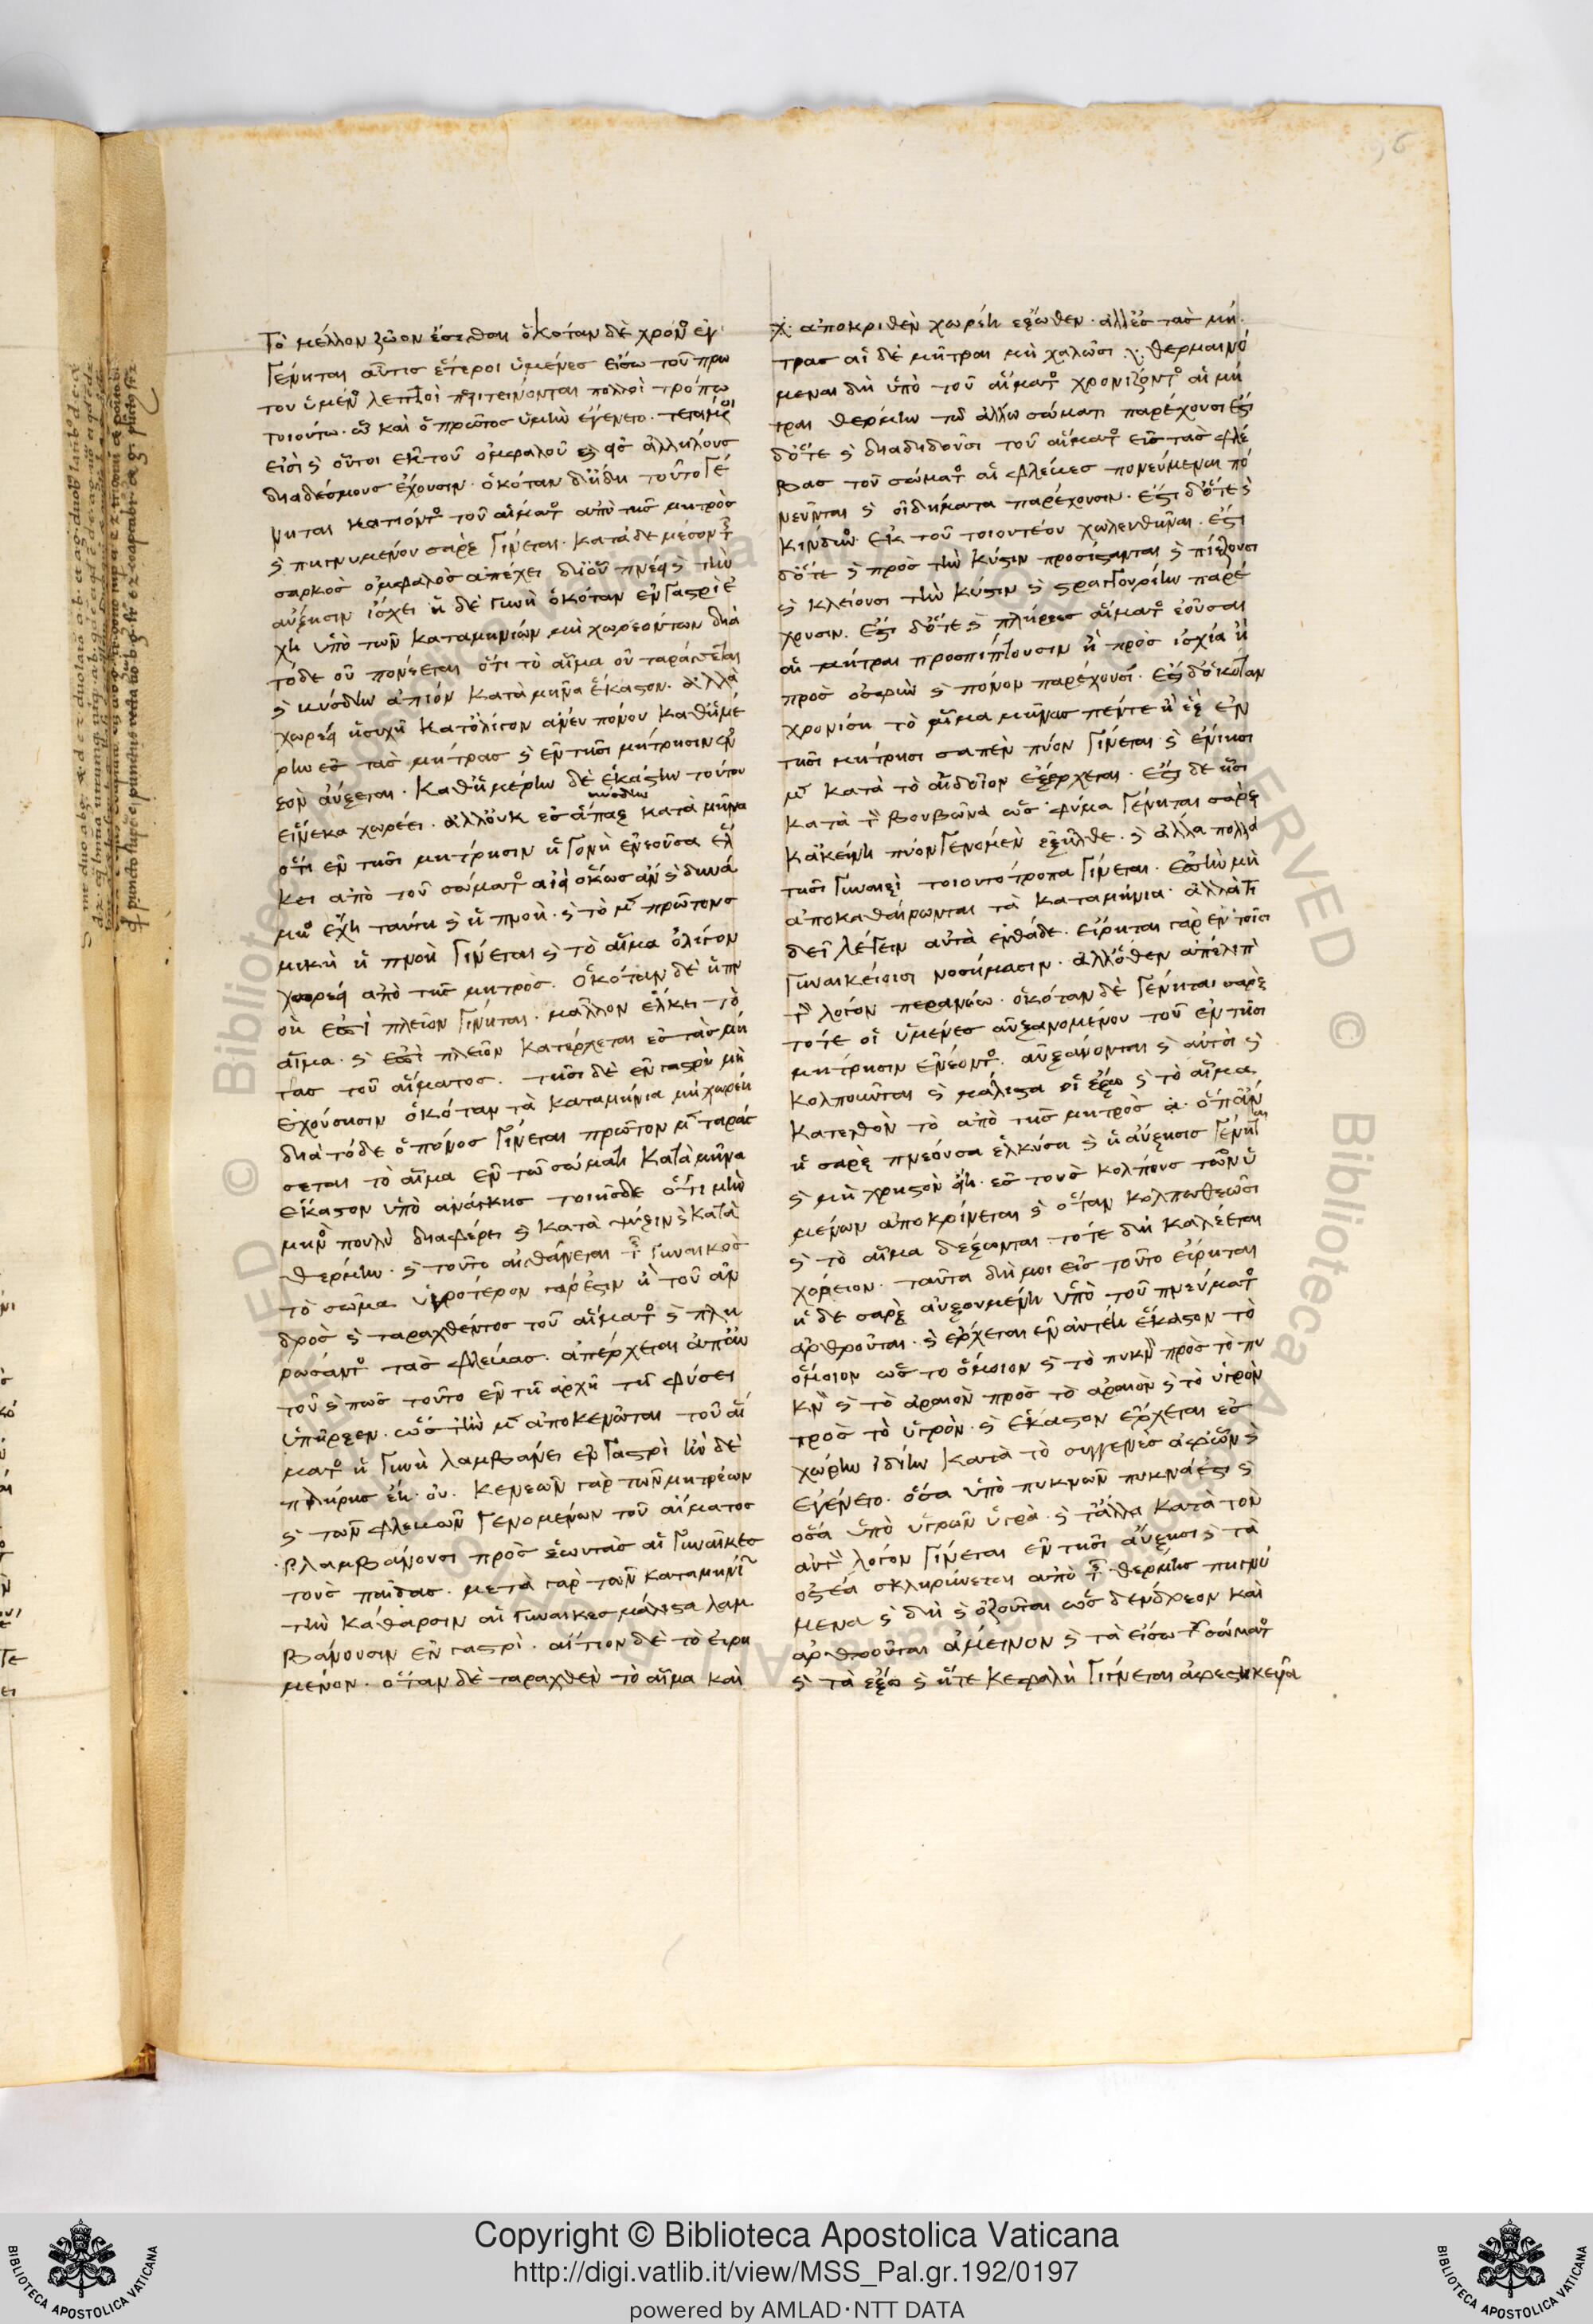 Τὸ μέλλον ζῶον ἔσεσθαι ὁκόταν δὲ χρόνου ἐγ
γένηται αὖτις ἕτεροι ὑμένες εἴσω τοῦ πρω
του ὑμένος λεπτοὶ περιτείνονται πολλοὶ τρόπω
τοιούτω. ὧ καὶ ὁ πρῶτος ὑμὴν ἐγένετο.
εἰσὶ καὶ οὗτοι ἐκ τοῦ ὀμφαλοῦ ἀλλήλους
διαδέσμους ἔχουσιν. ὁκόταν δὴ ἤδη τοῦτο γέ
νηται κατιόντος τοῦ αἵματος ἀπὸ τῆς μητρὸς
καὶ πηγνυμένου σὰρξ γίνεται. κατὰ δὲ μέσον τῆς
σαρκὸς ὀμφαλὸς ἀπέχει δι' οὗ πνέει καὶ τὴν
αὔξησιν ἴσχει ἡ δὲ γυνὴ ὁκόταν ἐν γαστρὶ ἔ
χη ὑπὸ τῶν καταμηνίων μὴ χωρεόντων διὰ
τόδε οὐ πονέεται ὅτι τὸ αἷμα οὐ ταράσσεται
κατὰ μῆνα ἕκαστον. ἀλλὰ
χωρέει ἡσυχῆ κατ' ὀλίγον ἄνευ πόνου καθ' ἡμέ
ρην ἐς τὰς μήτρας καὶ ἐν τῆσι μήτρησιν ἐν
εὸν αὔξεται. καθ' ἡμέρην δὲ ἑκάστην τούτου
εἵνεκα χωρέει. ἀλλ' οὐκ ἐς ἅπαξ κατὰ μῆνα
ὅτι ἐν τῆσι μήτρησιν ἡ γονὴ ἐνεοῦσα ἕλ
κει ἀπὸ τοῦ σώματος αἰεὶ ὅκως ἂν καὶ δυνά
μιος ἔχη ταύτη καὶ ἡ πνοὴ. καὶ τὸ μὲν πρῶτον σ
μικὴ ἡ πνοὴ γίνεται καὶ τὸ αἷμα ὀλίγον
χωρέει ἀπὸ τῆς μητρὸς. ὁκόταν δὲ ἡ πν
οὴ ἐπὶ πλεῖον γίνηται. μᾶλλον ἕλκει τὸ
αἷμα. καὶ ἐπὶ πλεῖον κατέρχεται ἐς τὰς μή
τας τοῦ αἵματος. τῆσι δὲ ἐν γαστρὶ μὴ
ἐχούσησιν ὁκόταν τὰ καταμήνια μὴ χωρέη
διὰ τόδε ὁ πόνος γίνεται πρῶτον μὲν ταράσ
σεται τὸ αἷμα ἐν τῶ σώματι κατὰ μῆνα
ἕκαστον ὑπὸ ἀνάγκης τοιῆσδε ὅτι μὴν
μηνὸς πουλὺ διαφέρει καὶ κατὰ ψύξιν καὶ κατὰ
θέρμην. καὶ τοῦτο αἰσθάνεται τῆς γυναικὸς
τὸ σῶμα ὑγρότερον γάρ ἐστιν ἢ τοῦ ἀν
δρὸς καὶ ταραχθέντος τοῦ αἵματος καὶ πλη
ρώσαντος τὰς φλέβας. ἀπέρχεται ἀπ' αὐ
τοῦ καὶ πως τοῦτο ἐν τῆ ἀρχῆ τῆ φύσει
ὑπῆρξεν. ὥστ' ἢν μὲν ἀποκενῶται τοῦ αἵ
ματος ἡ γυνὴ λαμβάνει ἐν γαστρὶ ἢν δὲ
πλήρης ἔη. οὐ. κενεῶν γὰρ τῶν μητρέων
καὶ τῶν φλεβῶν γενομένων τοῦ αἵματος
λαμβάνουσι πρὸς ἑωυτὰς αἱ γυναῖκες
τοὺς παῖδας. μετὰ γὰρ τῶν καταμηνίων
τὴν κάθαρσιν αἱ γυναῖκες μάλιστα λαμ
βάνουσιν ἐν γαστρὶ. αἴτιον δὲ τὸ εἰρη
μένον. ὅταν δὲ ταραχθὲν τὸ αἷμα καὶ
ἀποκριθὲν χωρέη ἔξωθεν. ἀλλ' ἐς τὰς μή
τρας αἱ δὲ μῆτραι μὴ χαλῶσι θερμαινό
μεναι δὴ ὑπὸ τοῦ αἵματος χρονίζοντος αἱ μῆ
τραι θέρμην τῶ ἄλλω σώματι παρέχουσι ἔστι
δ' ὅτε καὶ διαδιδοῦσι τοῦ αἵματος εἰς τὰς φλέ
βας τοῦ σώματος αἱ φλέβες πονεύμεναι πο
νεῦνται καὶ οἰδήματα παρέχουσιν. ἔστι δ' ὅτε καὶ
κίνδυνος ἐκ τοῦ τοιουτέου χωλευθῆναι. ἔστι
δ' ὅτε καὶ πρὸς τὴν κύστιν προσίστανται καὶ πιέζουσι
καὶ κλείουσι τὴν κύστιν καὶ στραγγουρίην παρέ
χουσιν. ἔστι δ' ὅτε καὶ πλήρεες αἵματος ἐοῦσαι
αἱ μῆτραι προσπίπτουσιν ἢ πρὸς ἰσχία ἢ
πρὸς ὀσφὺν καὶ πόνον παρέχουσι. ἔστι δ' ὁκόταν
χρονίση τὸ αἷμα μῆνας πέντε ἢ ἓξ ἐν
τῆσι μήτρησι σαπὲν πῦον γίνεται καὶ ἐνίησι
μὲν κατὰ τὸ αἰδοῖον ἐξέρχεται. ἔστι δὲ ἧσι
κατὰ τὸν βουβῶνα ὡς φῦμα γένηται σὰρξ
κἀκείνη πῦον γενομένη ἐξῆλθε. καὶ ἄλλα πολλὰ
τῆσι γυναιξὶ τοιουτότροπα γίνεται. ἐπὴν μὴ
ἀποκαθαίρωνται τὰ καταμήνια. ἀλλὰ τί
δεῖ λέγειν αὐτὰ ἐνθάδε. εἴρηται γὰρ ἐν τοῖσι
γυναικείοισι νοσήμασιν. ἀλλ' ὅθεν ἀπέλιπον
τὸν λόγον περανέω. ὁκόταν δὲ γένηται σὰρξ
τότε οἱ ὑμένες αὐξανομένου τοῦ ἐν τῆσι
μήτρησιν ἐνέοντος. αὐξάνονται καὶ αὐτοὶ καὶ
κολποῦνται καὶ μάλιστα οἱ ἔξω καὶ τὸ αἷμα
κατελθὸν τὸ ἀπὸ τῆς μητρὸς ὅπερ ἂν
ἡ σὰρξ πνέουσα ἑλκύση καὶ ἡ αὔξησις γένηται
καὶ μὴ χρηστὸν ἔη. ἐς τοὺς κόλπους τῶν ὑ
μένων ἀποκρίνεται καὶ ὅταν κολπωθέωσι
καὶ τὸ αἷμα δέξωνται. τότε δὴ καλέεται
χόρειον. ταῦτα δή μοι εἰς τοῦτο εἴρηται
ἡ δὲ σὰρξ αὐξουμένη ὑπὸ τοῦ πνεύματος
ἀρθροῦται. καὶ ἔρχεται ἐν αὐτέη ἕκαστον τὸ
ὅμοιον ὡς τὸ ὅμοιον καὶ τὸ πυκνὸν πρὸς τὸ πυ
κνὸν καὶ τὸ ἀραιὸν πρὸς τὸ ἀραιὸν καὶ τὸ ὑγρὸν
πρὸς τὸ ὑγρὸν. καὶ ἕκαστον ἔρχεται ἐς
χώρην ἰδίην κατὰ τὸ συγγενὲς ἀφ' ὧν καὶ
ἐγένετο. ὅσα ὑπὸ πυκνῶν πυκνὰ ἐστι καὶ
ὅσα ὑπὸ ὑγρῶν ὑγρὰ. καὶ τἄλλα κατὰ τὸν
αὐτὸν λόγον γίνεται ἐν τῆσι αὔξησι καὶ τὰ
ὀστέα σκληρύνεται ἀπὸ τῆς θέρμης πηγνύ
μενα καὶ δὴ καὶ ὀζοῦται ὡς δένδρεον καὶ
ἀρθροῦται ἄμεινον καὶ τὰ εἴσω τοῦ σώματος
καὶ τὰ ἔξω καὶ ἥτε κεφαλὴ γίνεται ἀφεστηκεῖα
Copyright © Biblioteca Apostolica Vaticana
http://digi.vatlib.it/view/MSS_Pal.gr.192/0197
powered by AMLAD·NTT DATA
BIBLIOTECA APOSTOLICA VATICANA
BIBLIOTECA APOSTOLICA VATICANA